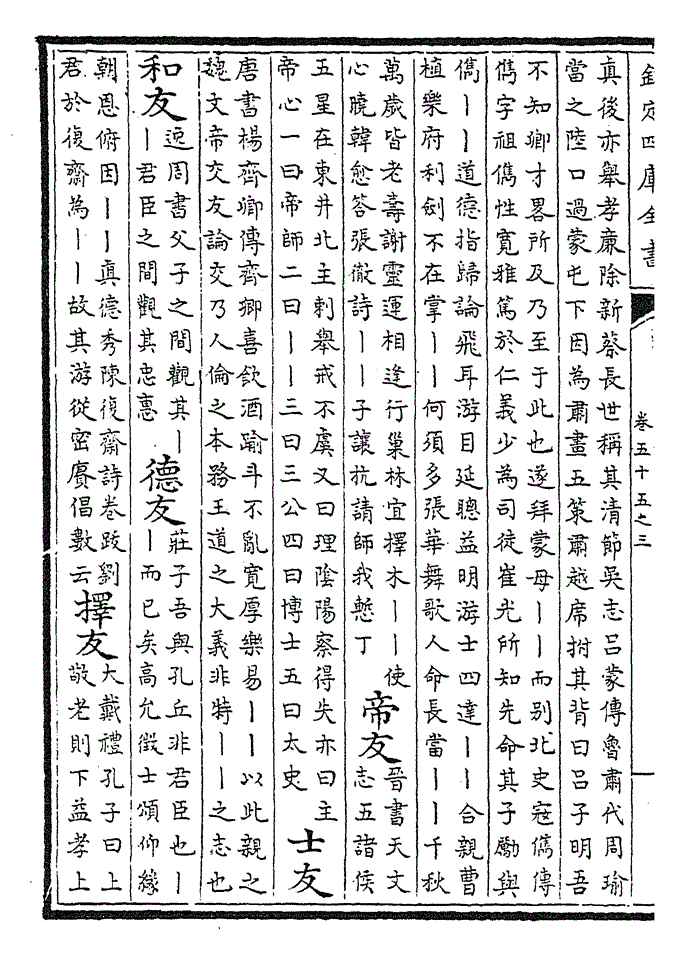 欽定四庫全書
卷五十五之三
真後亦舉孝廉除新蔡長世稱其清節吳志呂蒙傳魯肅代周瑜
當之陸口過蒙屯下因為肅畫五策肅越席拊其背曰呂子明吾
不知卿才畧所及乃至于此也遂拜蒙母丨丨而別北史寇儁傳
儁字祖儁性寬雅篤於仁義少為司徒崔光所知先命其子勵與
儁丨丨道德指歸論飛耳游目延聰益明游士四達丨丨合親曹
植樂府利劍不在掌丨丨何須多張華舞歌人命長當丨丨千秋
萬歲皆老壽謝靈運相逢行巢林宜擇木丨丨使
心曉韓愈答張徹詩丨丨子讓抗請師我慙丁
帝友
晉書天文
志五諸侯
五星在東井北主刺舉戒不虞又曰理陰陽察得失亦曰主
帝心一曰帝師二曰丨丨三曰三公四曰博士五曰太史
士友
唐書楊齊卿傳齊卿喜飲酒踰斗不亂寬厚樂易丨丨以此親之
魏文帝交友論交乃人倫之本務王道之大義非特丨丨之志也
和友
逸周書父子之間觀其丨
丨君臣之間觀其忠憓
德友
莊子吾與孔丘非君臣也丨
丨而已矣高允徵士頌仰緣
朝恩俯因丨丨真德秀陳復齋詩卷跋劉
君於復齋為丨丨故其游從密賡倡數云
擇友
大戴禮孔子曰上
敬老則下益孝上